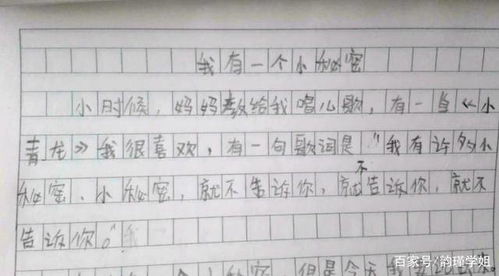 我有一个小秘密
小时候，妈妈教给我唱儿歌，有一首《小
青龙》我很喜欢，有一句歌词是"我有许多小
秘密、小秘密，就不告诉你，就不告诉你，就不
告诉你。"我
但是今天我
百家号/韵瑾学姐